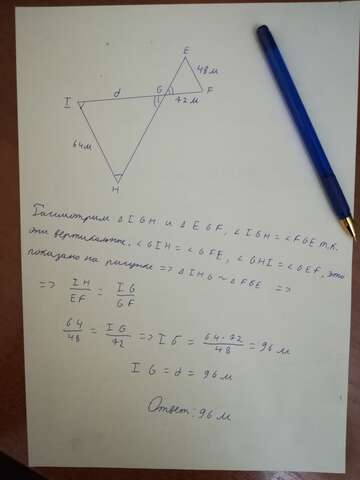 E
48м
G
F
d
72м
I
64м
H
Рассмотрим Δ IGH и Δ EGF, ∠IGH = ∠FGE т.к.
они вертикальные. ∠GIH = ∠GFE, ∠GHI = ∠GEF, это
показано на рисунке => Δ IHG ~ Δ FGE =>
=> IH/EF = IG/GF
64/48 = IG/72 => IG = 64·72/48 = 96м
IG = d = 96м
Ответ: 96м